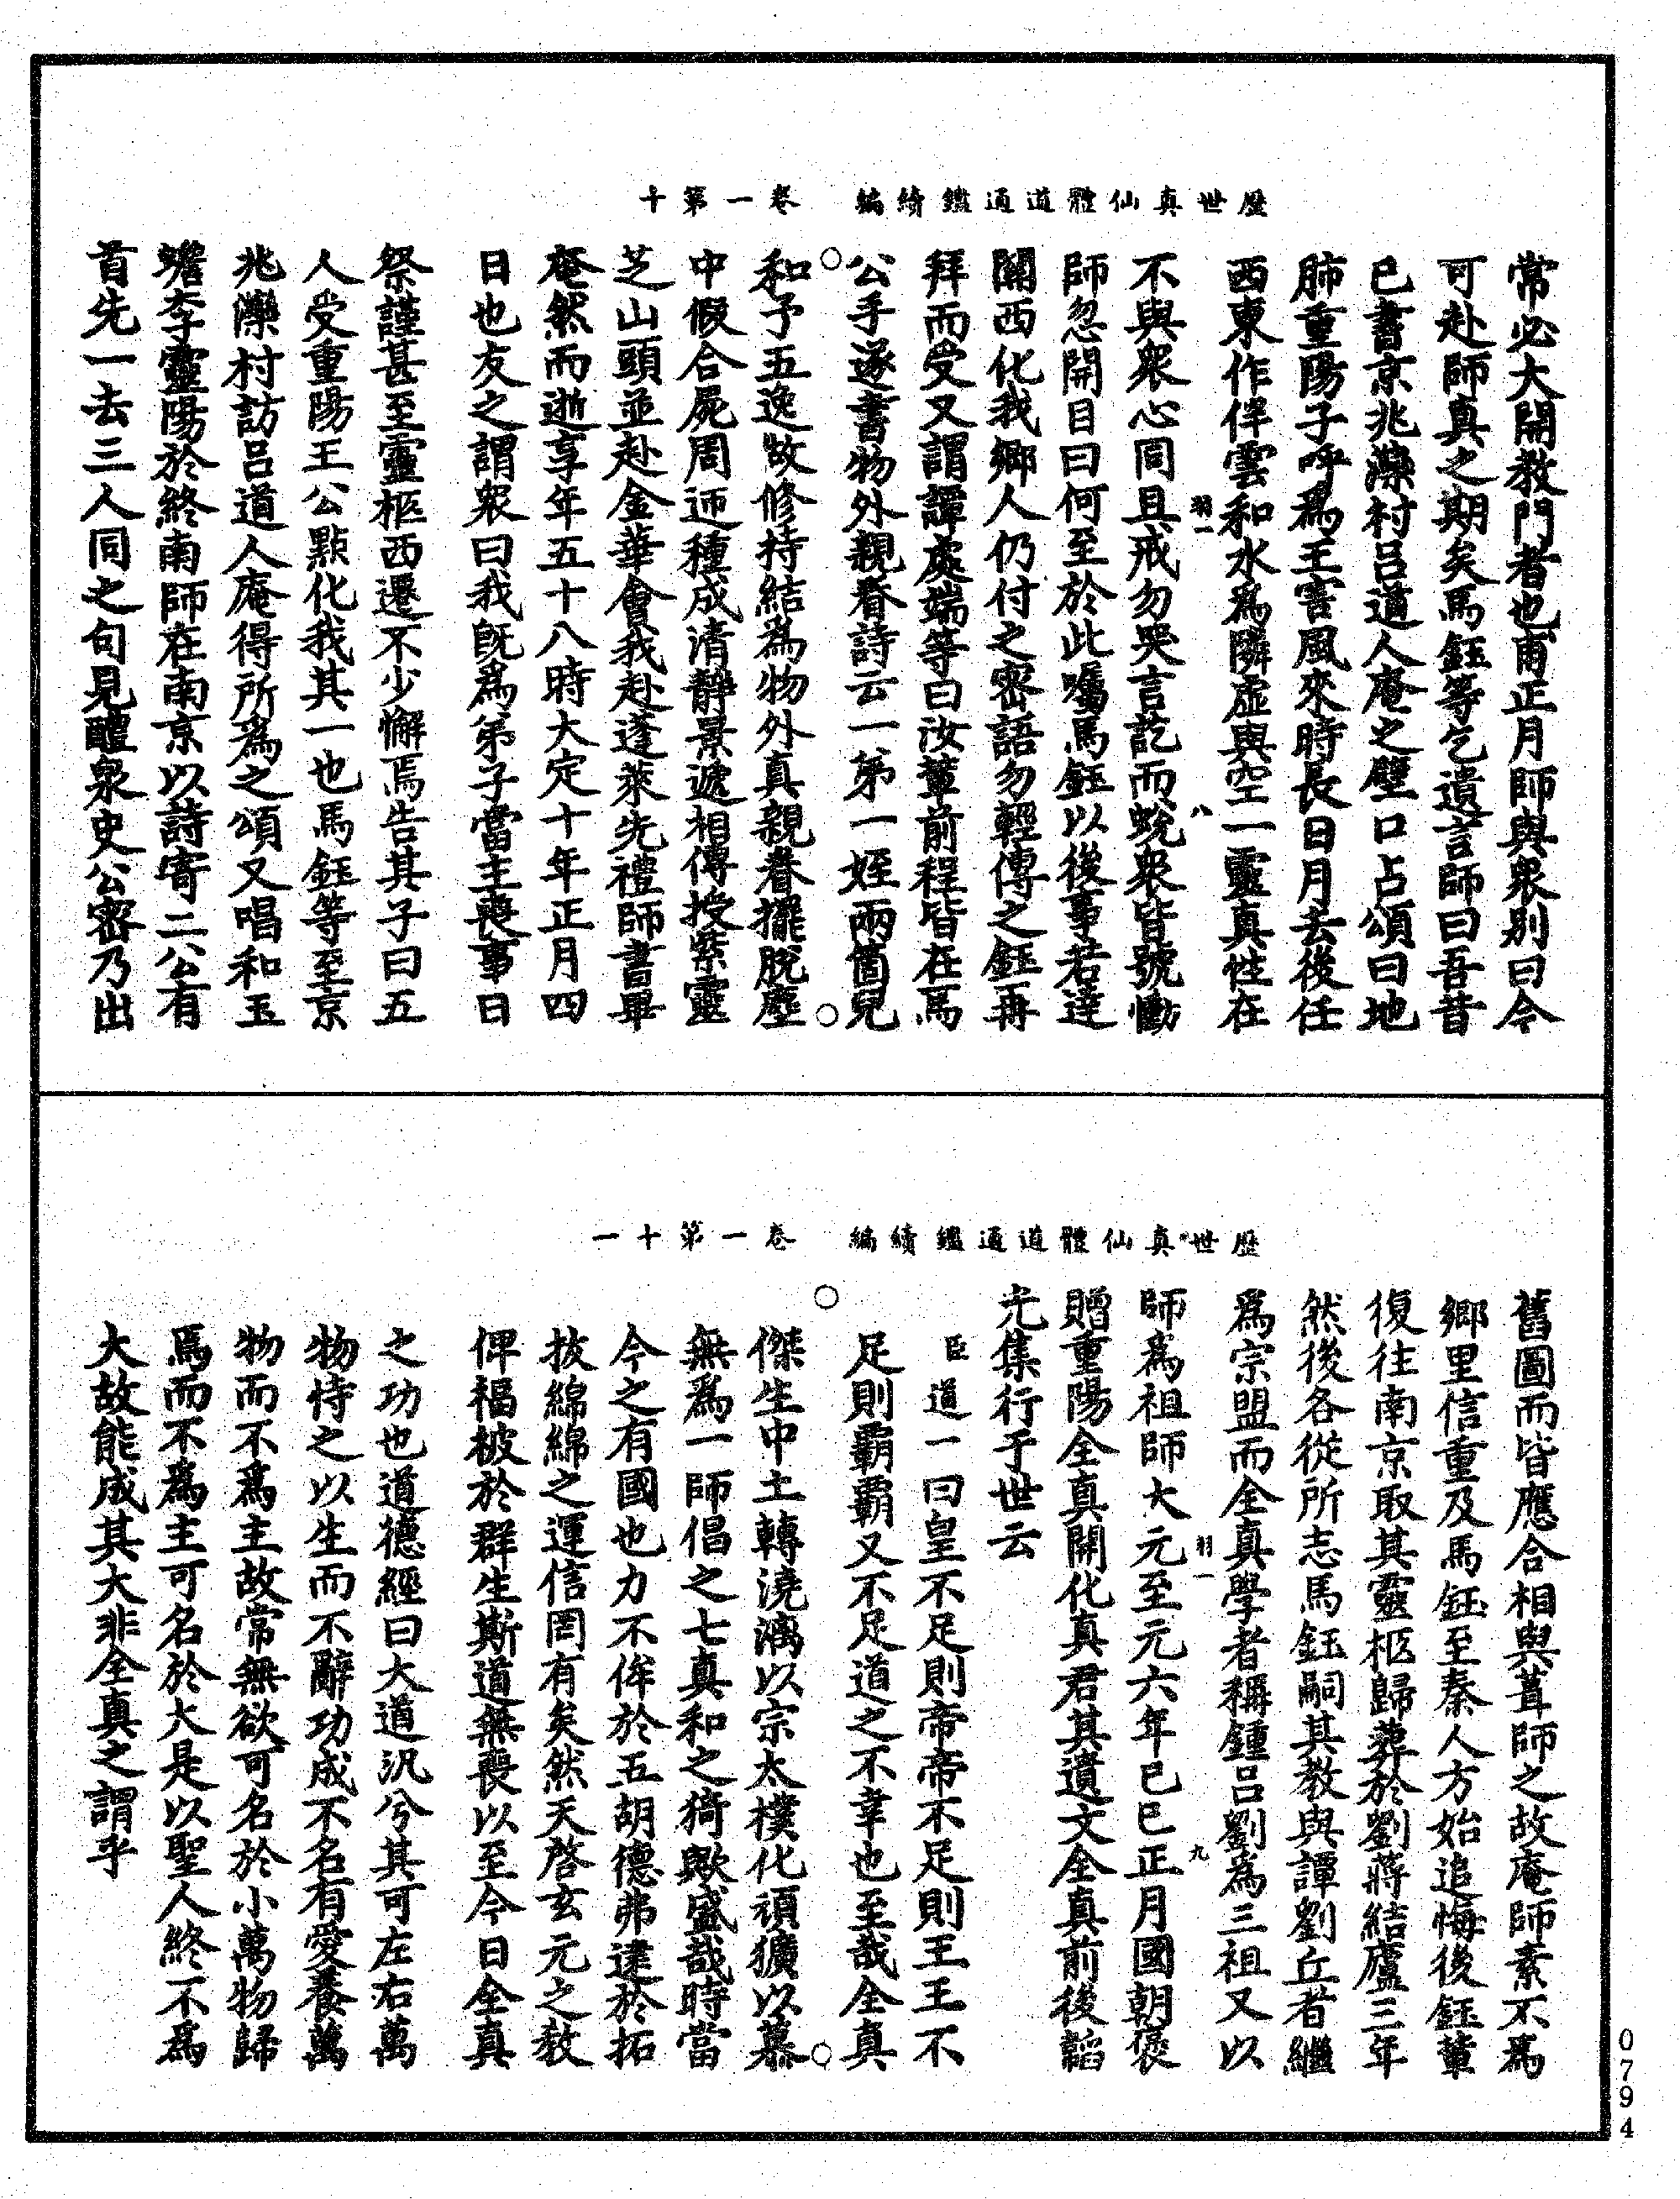 歷世真仙體道通鑑續編　卷一第十
常必大開教門者也甫正月師與衆別曰今
可赴師真之期矣馬鈺等乞遺言師曰吾昔
已書京兆灤村呂道人庵之壁口占頌曰地
肺重陽子呼爲王害風來時長日月去後任
西東作伴雲和水爲隣虛與空一靈真性在
羽一　八
不與衆心同且戒勿哭言訖而蛻衆皆號慟
師忽開目曰何至於此囑馬鈺以後事若達
關西化我鄉人仍付之密語勿輕傳之鈺再
拜而受又謂譚處端等曰汝輩前程皆在馬
公手遂書物外親眷詩云一第一姪兩箇兒
和予五逸故修持結爲物外真親眷擺脫塵
中假合屍周迊種成清靜景遞相傳授紫靈
芝山頭並赴金華會我赴蓬萊先禮師書畢
奄然而逝享年五十八時大定十年正月四
日也友之謂衆曰我旣爲弟子當主喪事日
祭謹甚至靈柩西遷不少懈焉告其子曰五
人受重陽王公點化我其一也馬鈺等至京
兆灤村訪呂道人庵得所爲之頌又唱和玉
蟾李靈陽於終南師在南京以詩寄二公有
首先一去三人同之句見醴泉史公密乃出
歷世真仙體道通鑑續編　卷一第十一
舊圖而皆應合相與葺師之故庵師素不爲
鄉里信重及馬鈺至秦人方始追悔後鈺輩
復往南京取其靈柩歸葬於劉蔣結廬三年
然後各從所志馬鈺嗣其教與譚劉丘者繼
爲宗盟而全真學者稱鍾呂劉為三祖又以
羽一　九
師爲祖師大元至元六年己巳正月國朝褒
贈重陽全真開化真君其遺文全真前後韜
光集行于世云
臣道一曰皇不足則帝帝不足則王王不
足則霸霸又不足道之不幸也至哉全真
傑生中土轉澆漓以宗太樸化頑獷以慕
無爲一師倡之七真和之猗歟盛哉時當
今之有國也力不侔於五胡德弗逮於拓
拔綿綿之運信罔有矣然天啓玄元之教
俾福被於群生斯道無喪以至今日全真
之功也道德經曰大道汎兮其可左右萬
物恃之以生而不辭功成不名有愛養萬
物而不爲主故常無欲可名於小萬物歸
焉而不爲主可名於大是以聖人終不爲
大故能成其大非全真之謂乎
0794